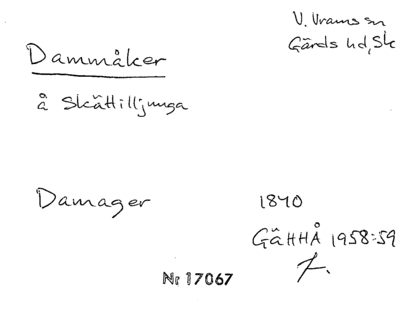 V. Vrams sn
Gärds hd, Sk
Dammåker
å Skättilljunga
Damager 1840
GäHHÅ 1958:59
Nr 17067